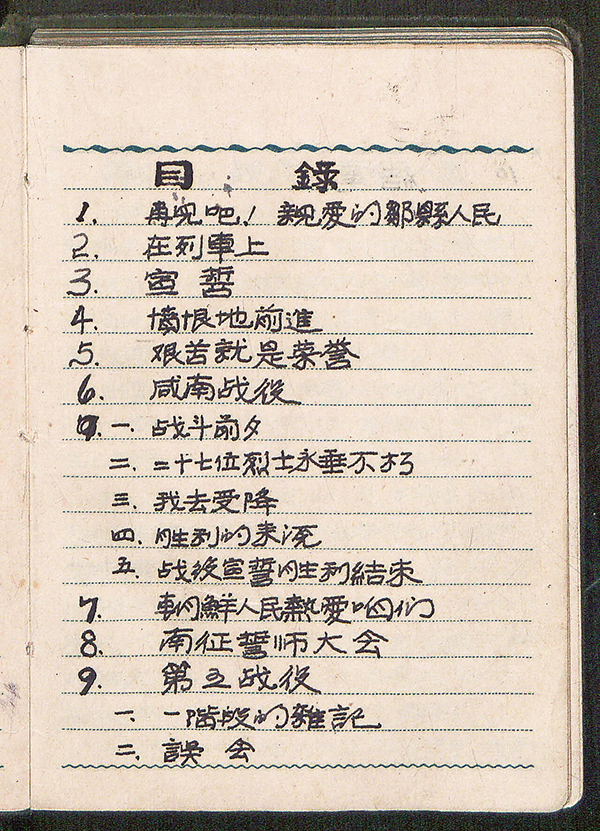 目 錄
1. 再見吧! 親愛的鄒縣人民
2. 在列車上
3. 宣誓
4. 憤恨地前進
5. 艰苦就是荣誉
6. 咸南战役
一. 战斗前夕
二. 二十七位烈士永垂不朽
三. 我去受降
四. 胜利的来源
五. 战役宣誓胜利結束
7. 朝鮮人民熱愛咱们
8. 南征誓师大会
9. 第五战役
一. 一階段的雜記
二. 誤会